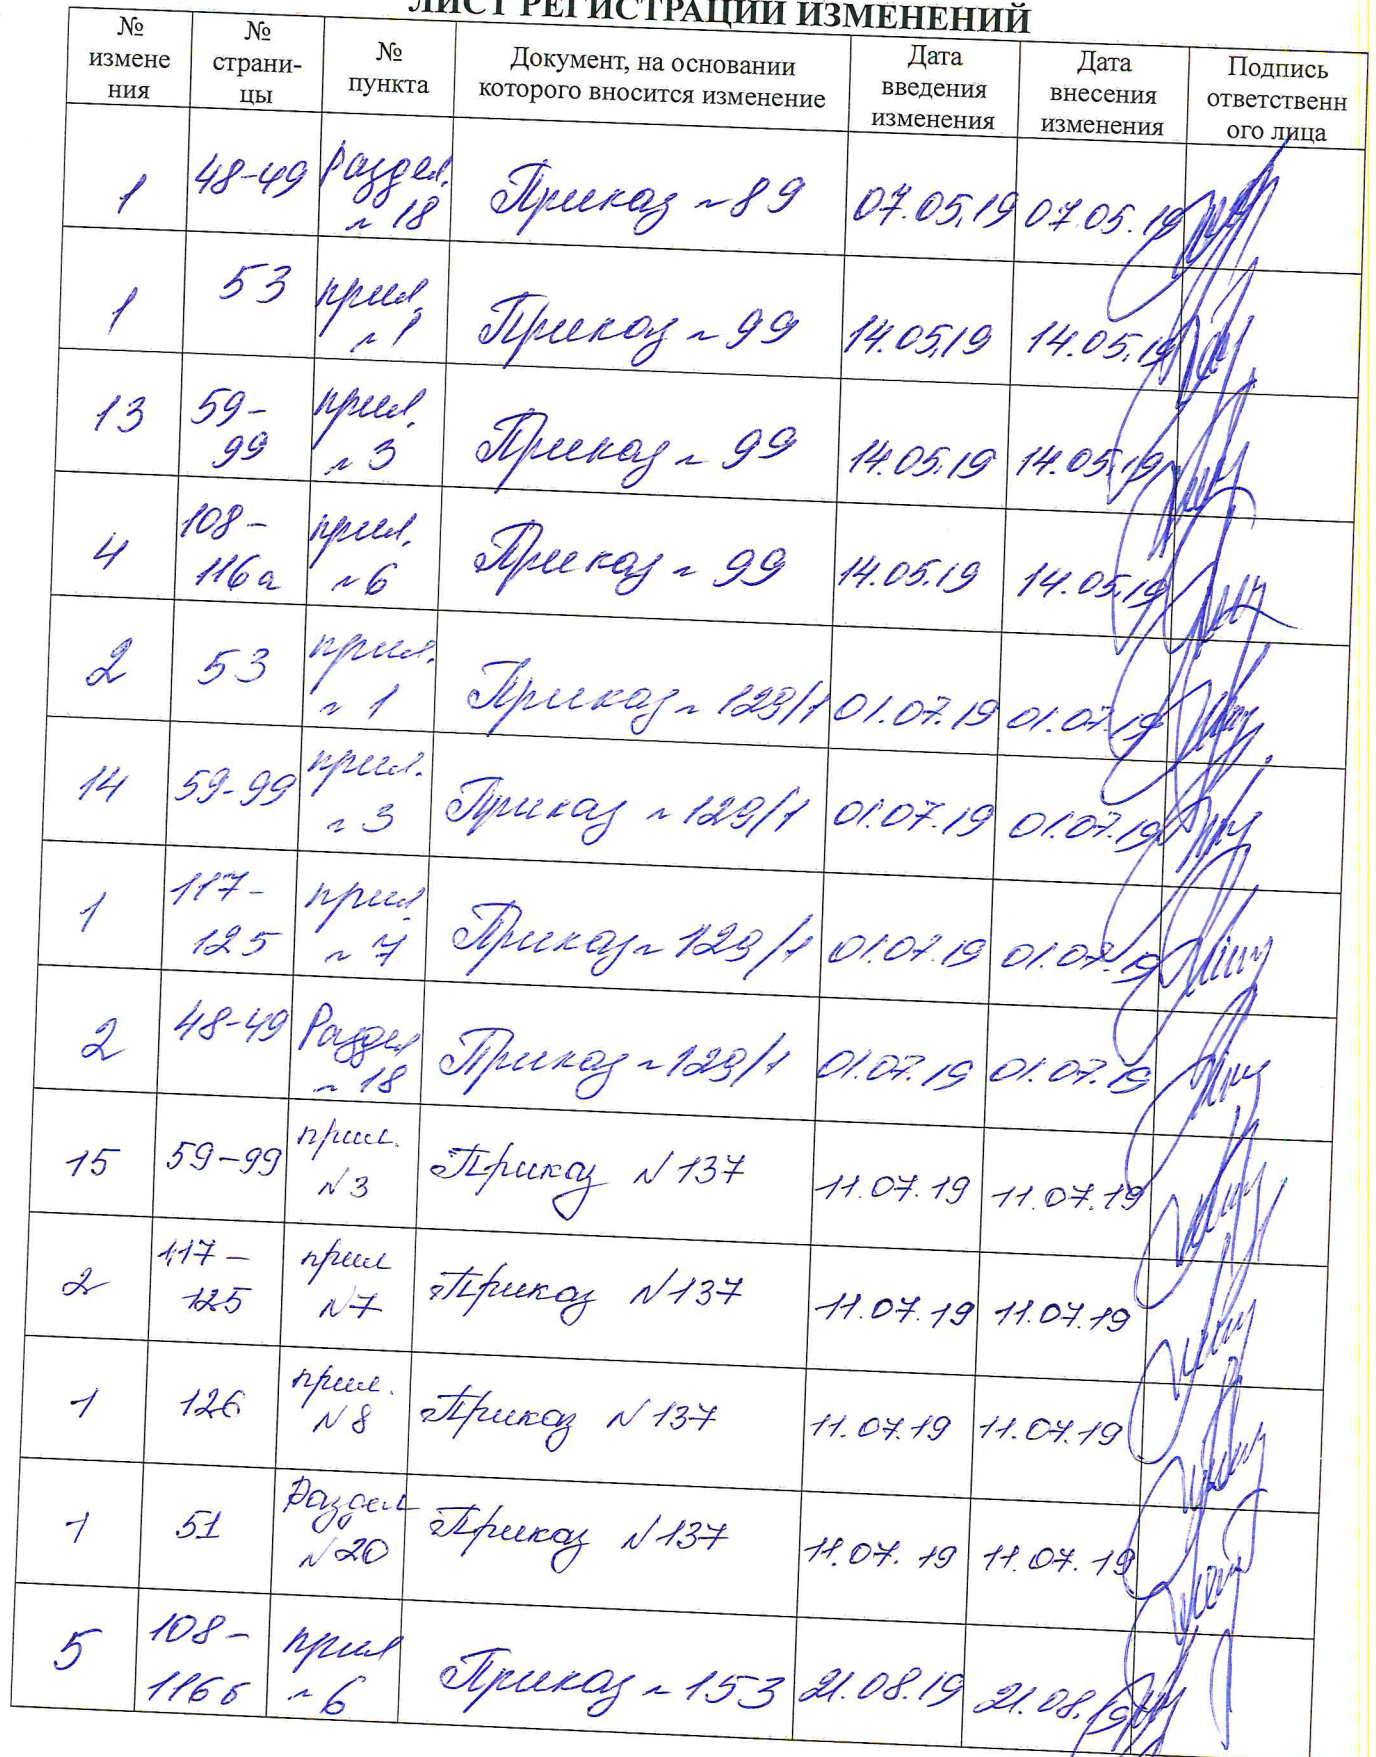 ЛИСТ РЕГИСТРАЦИИ ИЗМЕНЕНИЙ
№
измене
ния
№
страни-
цы
№
пункта
Документ, на основании
которого вносится изменение
Дата
введения
изменения
Дата
внесения
изменения
Подпись
ответственн
ого лица
1
48-49
Раздел.
№ 18
Приказ № 89
07.05.19
07.05.19
1
53
прил.
№ 1
Приказ № 99
14.05.19
14.05.19
13
59-
99
прил.
№ 3
Приказ № 99
14.05.19
14.05.19
4
108-
116а
прил.
№ 6
Приказ № 99
14.05.19
14.05.19
2
53
прил.
№ 1
Приказ № 129/1
01.07.19
01.07.19
14
59-99
прил.
№ 3
Приказ № 129/1
01.07.19
01.07.19
1
117-
125
прил.
№ 7
Приказ № 129/1
01.07.19
01.07.19
2
48-49
Раздел
№ 18
Приказ № 129/1
01.07.19
01.07.19
15
59-99
прил.
N3
Приказ N137
11.07.19
11.07.19
2
117-
125
прил
N7
Приказ N137
11.07.19
11.07.19
1
126
прил.
N8
Приказ N137
11.07.19
11.07.19
1
51
Раздел
N20
Приказ N137
11.07.19
11.07.19
5
108-
116б
прил
№ 6
Приказ № 153
21.08.19
21.08.19